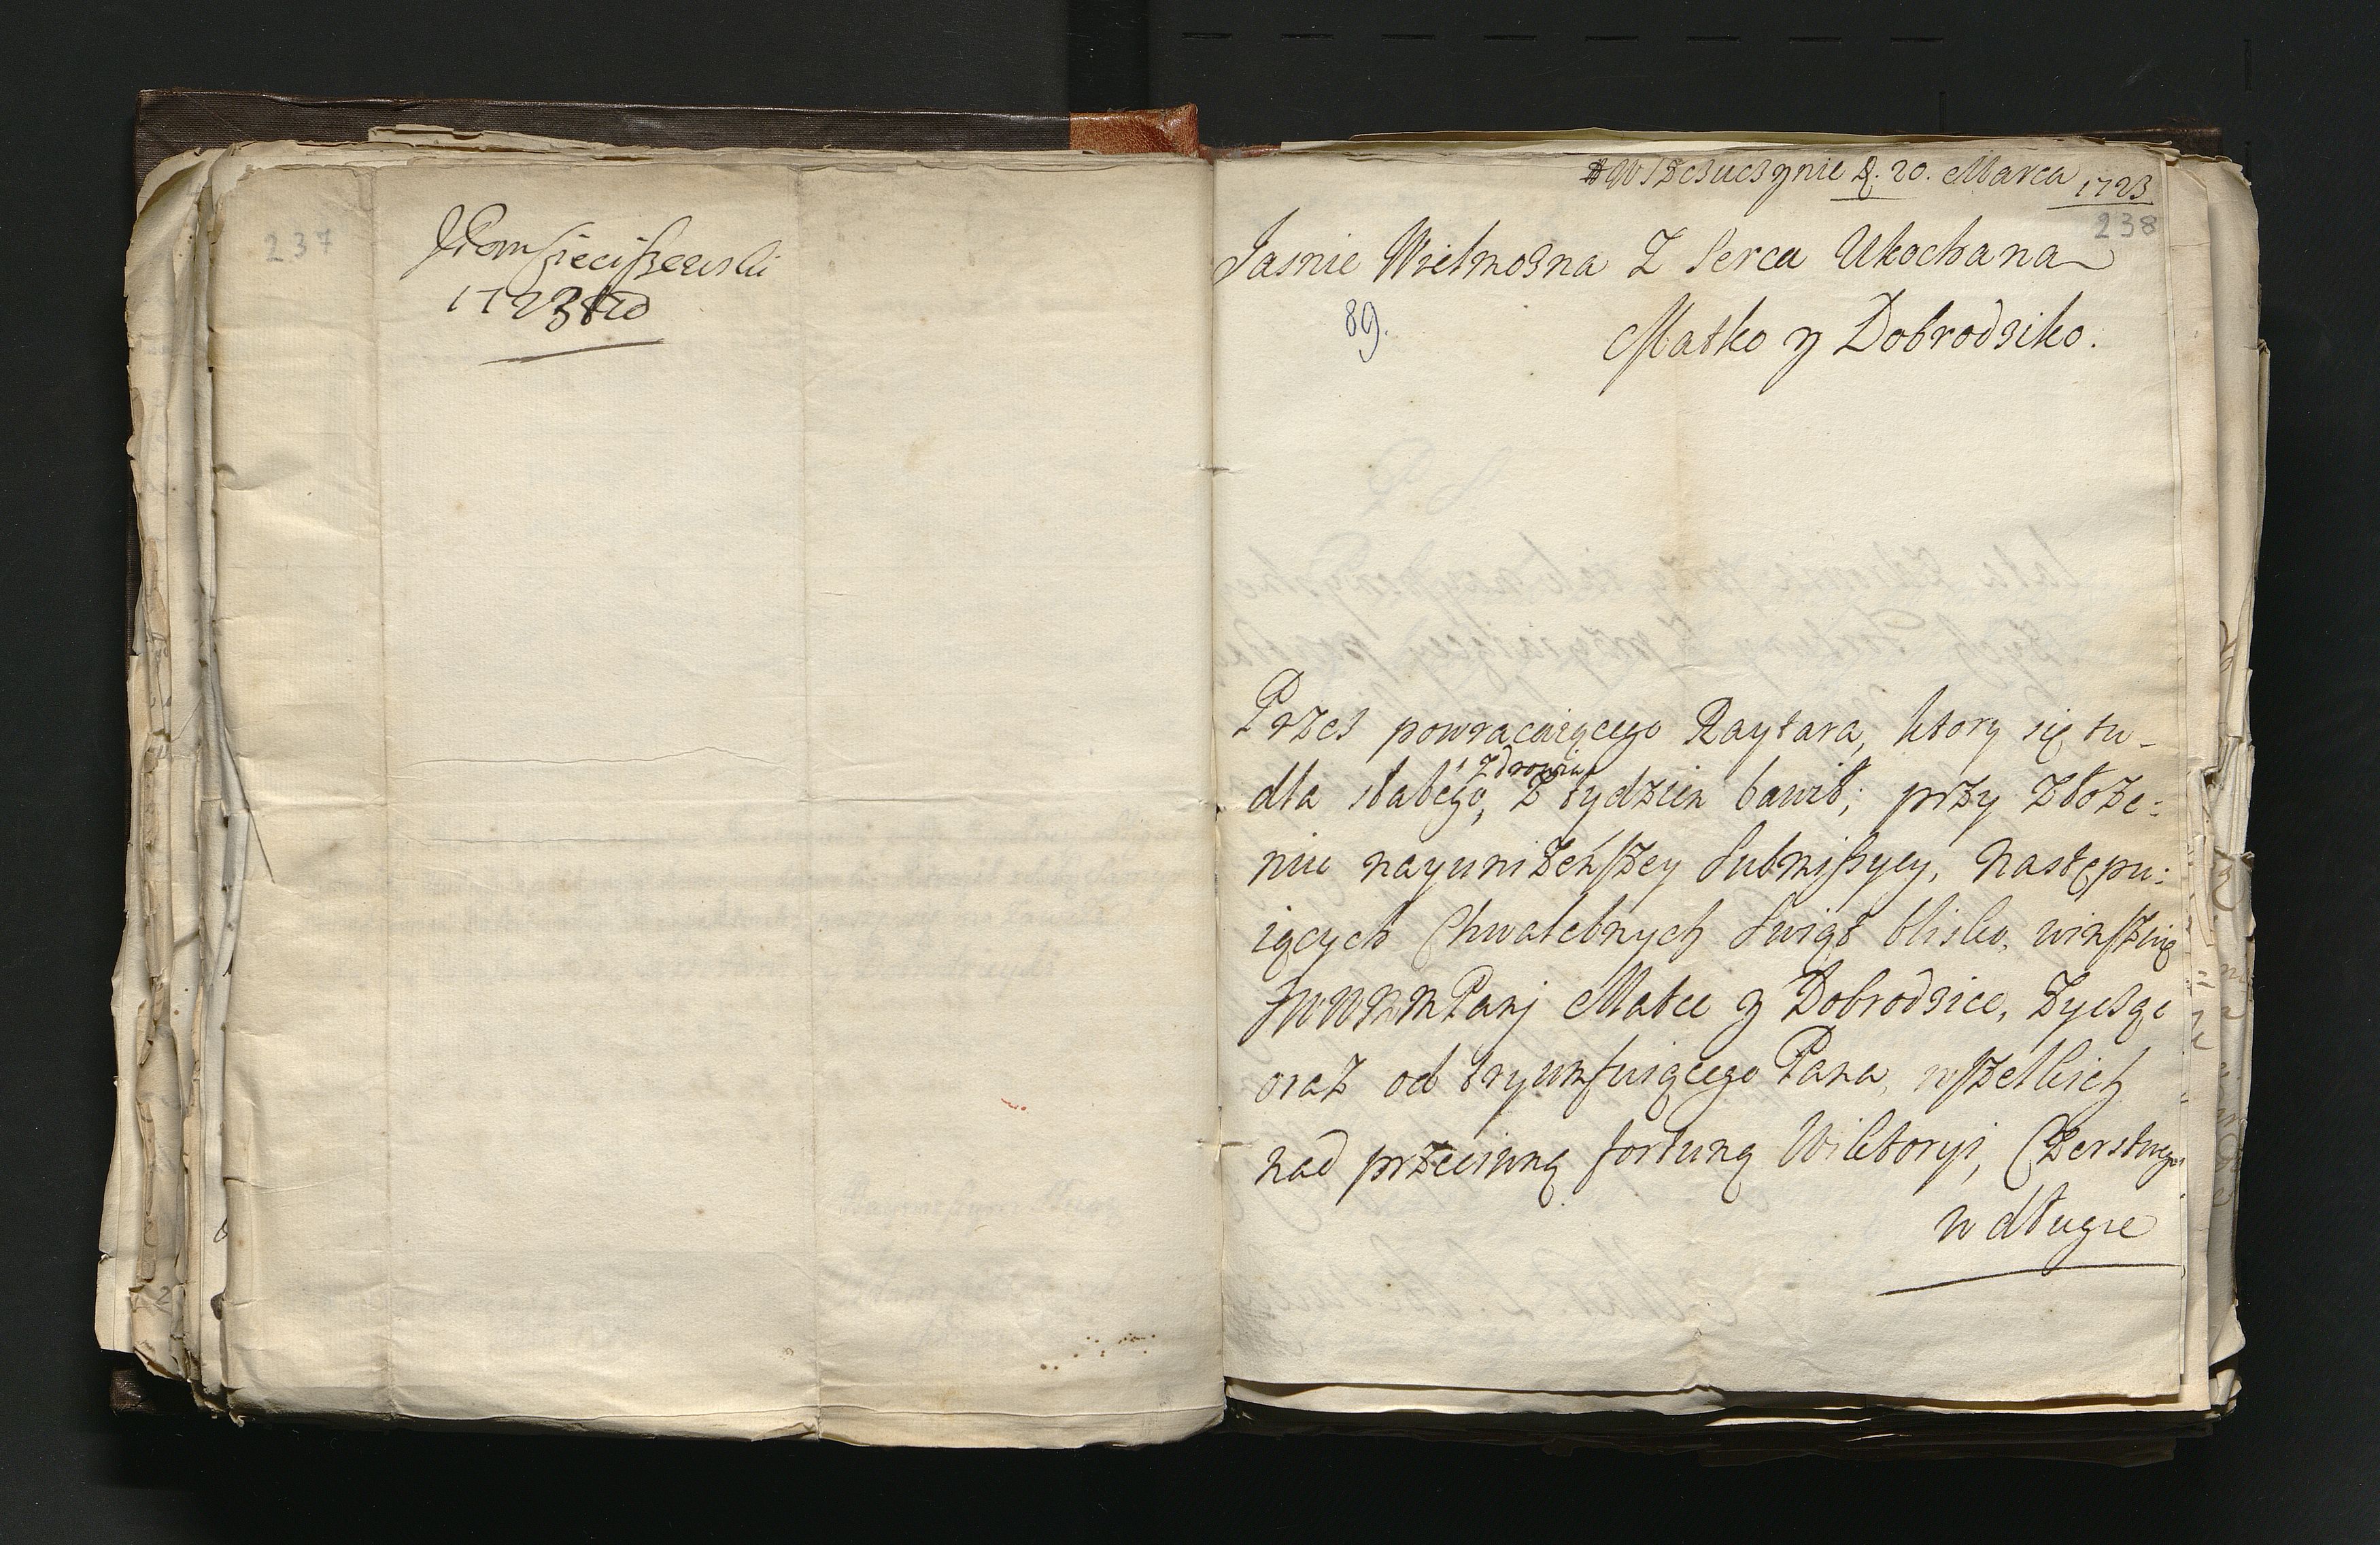 237
JPan Sieciszewski
1723
W Szczuczynie D. 20. Marca 1723
238
Jasnie Wielmożna Z Serca Ukochana
89.
Matko y Dobrodziko.
Przez powracaiącego Raytara, ktory się tu
dla słabego, zdrowia z tydzien bawił; przy złoże:
niu nayuniżenszey submissyey, następu:
iących Chwalebnych Swiąt blisko, winszuię
JWWMM Panj Matce y Dobrodzice, życzę
oraz od tryumfuiącego Pana, wszelkich
nad przeciwną fortuną Wiktoryi, Czerstwego
w długie